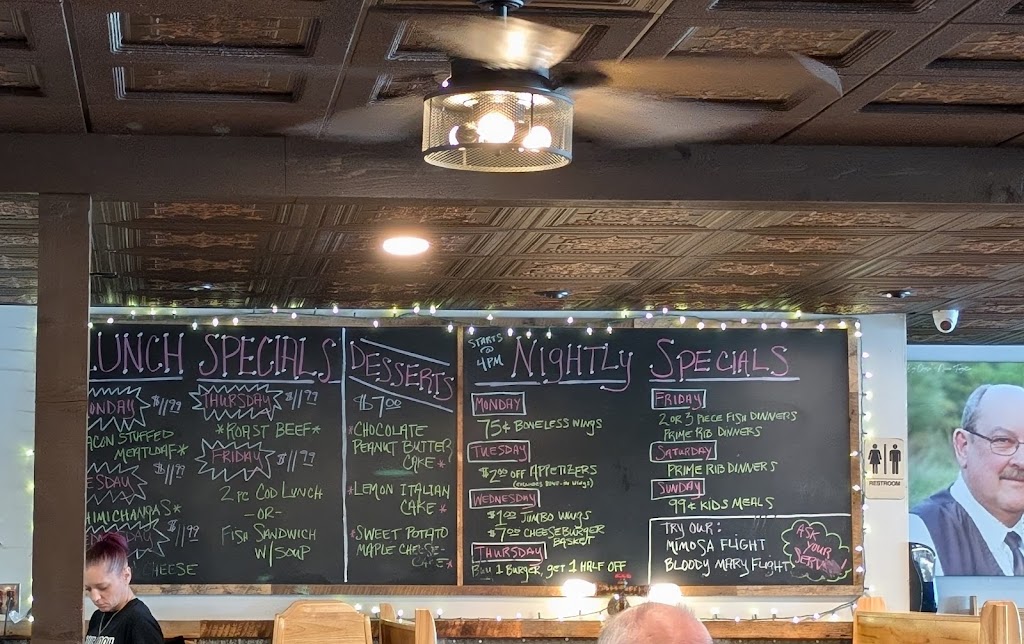 LUNCH SPECIALS
MONDAY $11.99
BACON STUFFED
MEATLOAF*
TUESDAY
CHIMICHANGAS*
$11.99
CHEESE
THURSDAY $11.99
*ROAST BEEF*
FRIDAY $11.99
2 PC COD LUNCH
-OR-
FISH SANDWICH
W/SOUP
DESSERTS
$7.00
*CHOCOLATE
PEANUT BUTTER
CAKE*
*LEMON ITALIAN
CAKE*
*SWEET POTATO
MAPLE CHEESE-
CAKE*
STARTS
@
4PM
NIGHTLY SPECIALS
MONDAY
75¢ BONELESS WINGS
TUESDAY
$2.00 OFF APPETIZERS
WEDNESDAY
$1.00 JUMBO WINGS
$7.00 CHEESEBURGER
BASKET
THURSDAY
BUY 1 BURGER, GET 1 HALF OFF
FRIDAY
2 OR 3 PIECE FISH DINNERS
PRIME RIB DINNERS
SATURDAY
PRIME RIB DINNERS
SUNDAY
99¢ KIDS MEALS
TRY OUR:
MIMOSA FLIGHT
BLOODY MARY FLIGHT
ASK
YOUR
SERVER!
RESTROOM